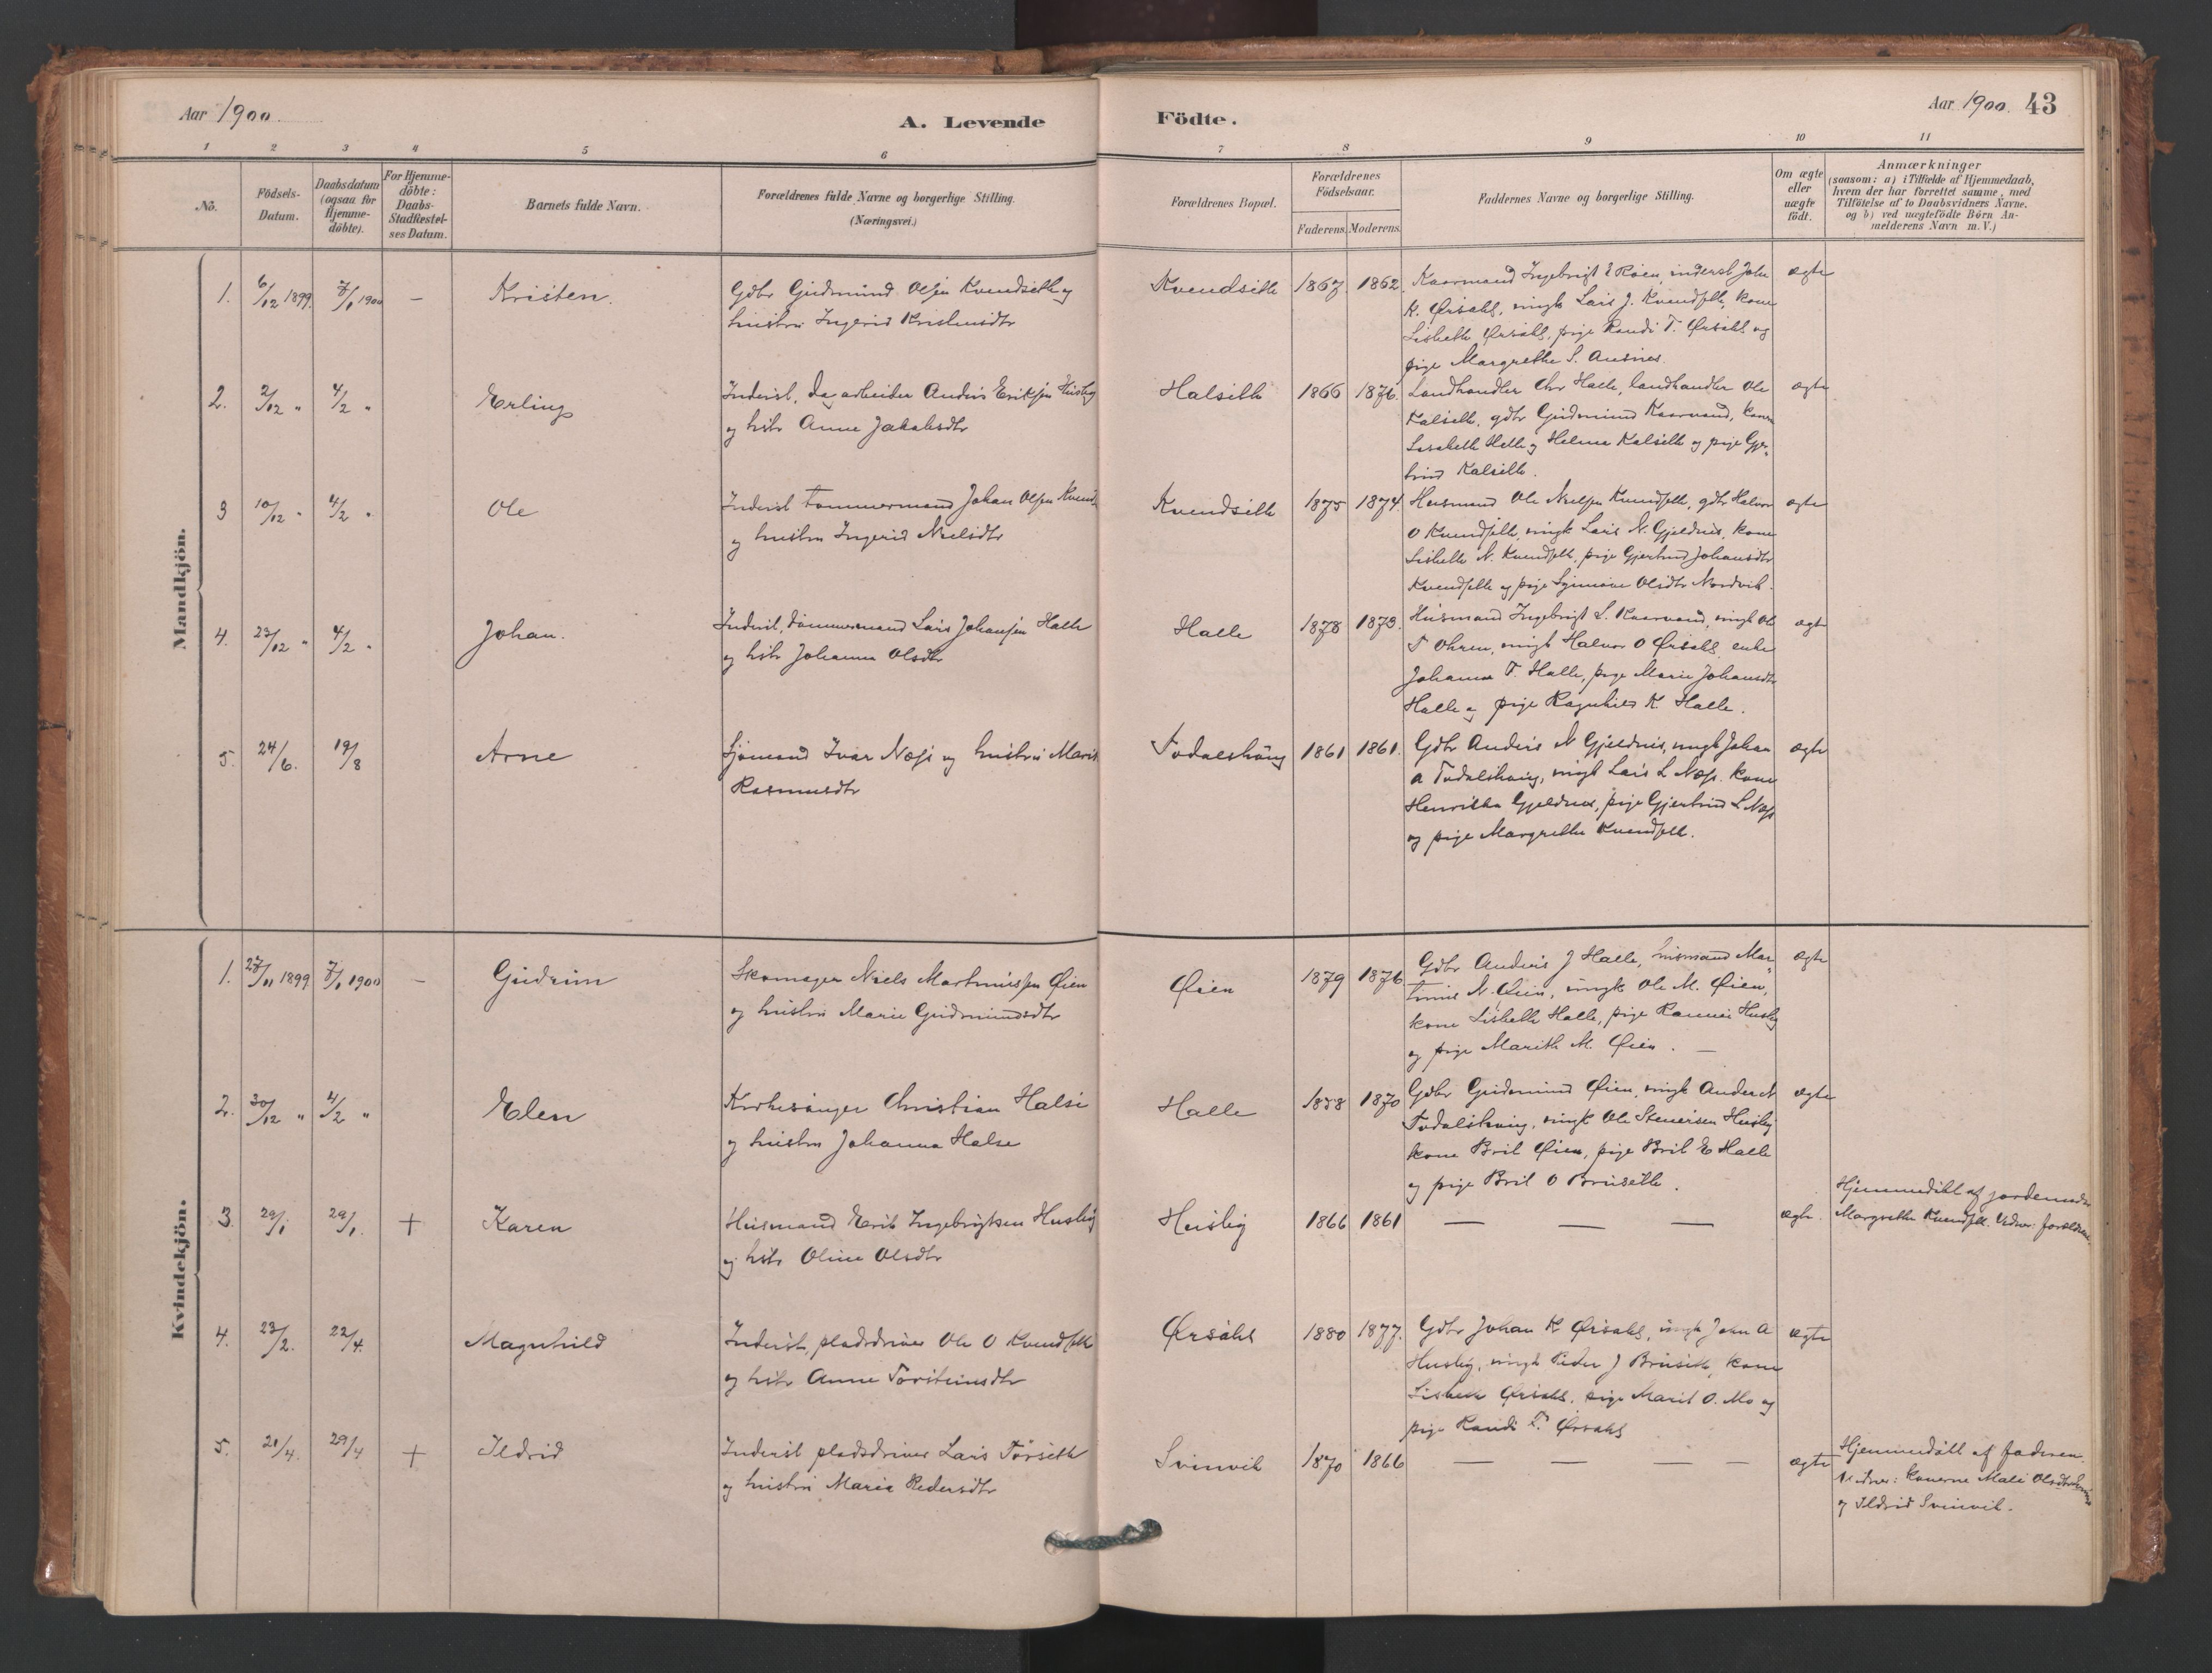 Aar 1900.
A. Levende Födte.
Aar 1900. 43
1 2 3 4 5 6 7 8 9 10 11
No.
Födsels-
Datum.
Daabsdatum
(ogsaa for
Hjemme-
döbte).
For Hjemme-
döbte:
Daabs-
Stadfæstel-
ses Datum.
Barnets fulde Navn.
Forældrenes fulde Navne og borgerlige Stilling.
(Næringsvei.)
Forældrenes Bopæl.
Forældrenes
Födselsaar.
Faderens. Moderens.
Faddernes Navne og borgerlige Stilling.
Om ægte
eller
uægte
födt.
Anmærkninger
(saasom: a) i Tilfælde af Hjemmedaab,
hvem der har forrettet samme, med
Tilföielse af to Daabsvidners Navne.
og b) ved uægtefödte Börn An-
melderens Navn m. V.)
Mandkjön.
1. 6/12 1899. 7/1 1900 – Kristen.
Gdbr Gudmund Olsen Kvendseth og
hustru Ingerid Kristensdtr
Kvendseth 1867. 1862.
Kaarmand Ingebrigt E Röen, inderst John
K. Ørsahl, ungk Lars J. Kvendseth, kone
Lisbeth Ørsahl, pige Randi T. Ørsahl og
pige Margrethe S. Ausnes.
ægte
2. 2/12 " 4/2 " Erling
Inderst, dagarbeider Anders Eriksen Husby
og hstr Anne Jakobsdtr
Halseth 1866 1876.
Landhandler Chr Halle, landhandler Ole
Kalseth, gdbr Gudmund Kaarvand, kone
Lisabeth Halle og Helene Kalseth og pige Gjer-
trud Kalseth.
ægte
3 10/12 " 4/2 " Ole
Inderst tömmermand Johan Olsen Kvends
og hustru Ingerid Nielsdtr
Kvendseth 1875 1874.
Husmand Ole Nielsen Kvendseth, gdbr Halvor
O Kvendseth, ungk Lars N. Gjeldnes, kone
Lisbeth N. Kvendseth, pige Gjertrud Johansdtr
Kvendseth og pige Synnöve Olsdtr Nordvik.
ægte
4. 23/12 " 4/2 " Johan.
Inderst, tömmermand Lars Johansen Halle
og hstr Johanna Olsdtr
Halle 1878 1873.
Husmand Ingebrigt L. Kaarvand, ungk Ole
T Ohren, ungk Halvor O Ørsahl, enke
Johanna T. Halle, pige Marie Johansdtr
Halle og pige Ragnhild K. Halle.
ægte
5. 24/6. 19/8 Arne
Sjömand Ivar Næss og hustru Marit
Rasmusdtr
Todalshaug 1861 1861.
Gdbr Anders N Gjeldnes, ungk Johan
A Todalshaug, ungk Lars L Næss. kone
Henrikka Gjeldnes, pige Gjertrud L Næss
og pige Margrethe Kvendseth.
ægte
Kvindekjön.
1. 27/11 1899 7/1 1900 – Gudrun
Skomager Niels Martinussen Øien
og hustru Marie Gudmundsdtr
Øien 1879 1876
Gdbr Anders J Halle, husmand Mar-
tinus N. Øien, ungk Ole M. Øien,
kone Lisbeth Halle, pige Husby
og pige Marith M. Øien. —
ægte
2. 30/12 " 4/2 " Elen
Kirkesanger Christian Halse
og hustru Johanna Halse
Halle 1858 1870
Gdbr Gudmund Øien, ungk Anders A
Todalshaug, ungk Ole Steuersen Husby
kone Brit Øien, pige Brit E Halle
og pige Brit O Bruseth.
ægte
3. 29/1 29/1. + Karen
Husmand Erik Ingebrigtsen Husby
og hstr Oline Olsdtr
Husby 1866 1861 — — —
ægte.
Hjemmedöbt af jordemoder
Margrethe Kvendseth. Vidner: forældrene.
4. 23/2. 22/4. Magnhild
Inderst, pladsdriver Ole O Kvendseth
og hstr Anne Torsteinsdtr
Ørsahl 1880 1877.
Gdbr Johan K Ørsahl, ungk John A
Husby, ungk Peder J Bruseth, kone
Lisbeth Ørsahl, pige Marit O. Mo og
pige Randi T. Ørsahl
ægte
5. 21/4. 29/4 + Ildrid
Inderst pladsdriver Lars Torseth
og hustru Marie Pedersdtr
Svinvik 1870 1866 — — — —
ægte
Hjemmedöbt af faderen.
Vidner: konerne Mali Olsdtr
og Ildrid Svinvik.